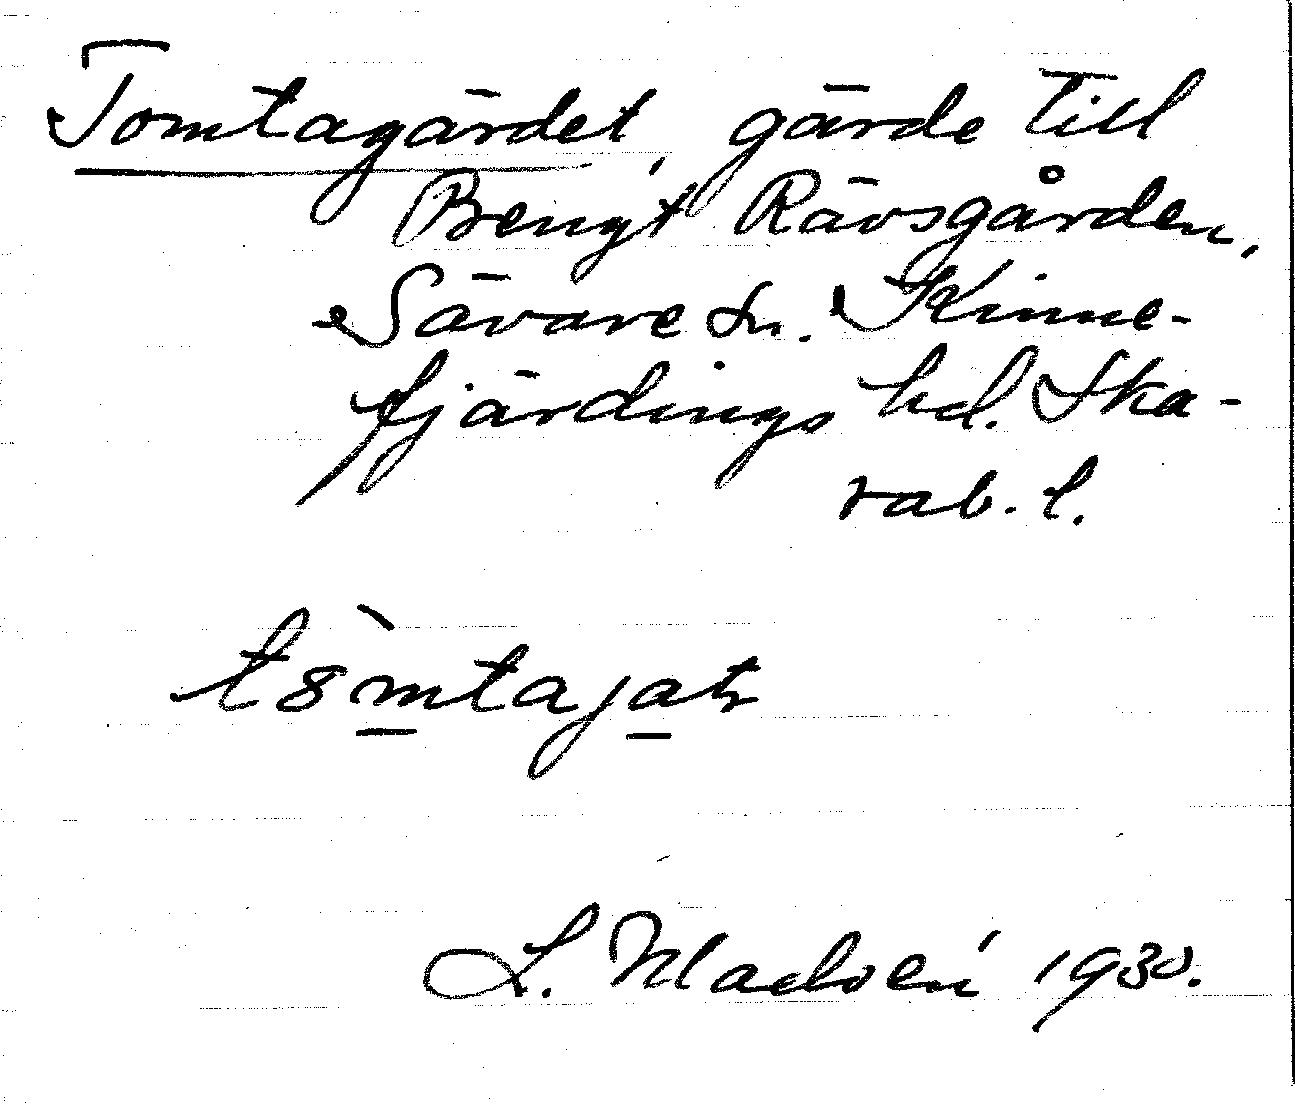 Tomtagärdet, gärde till
Bengt Rävsgården,
Sävare sn. Kinne-
fjärdings hd. Ska-
rab. l.
L. 1930.